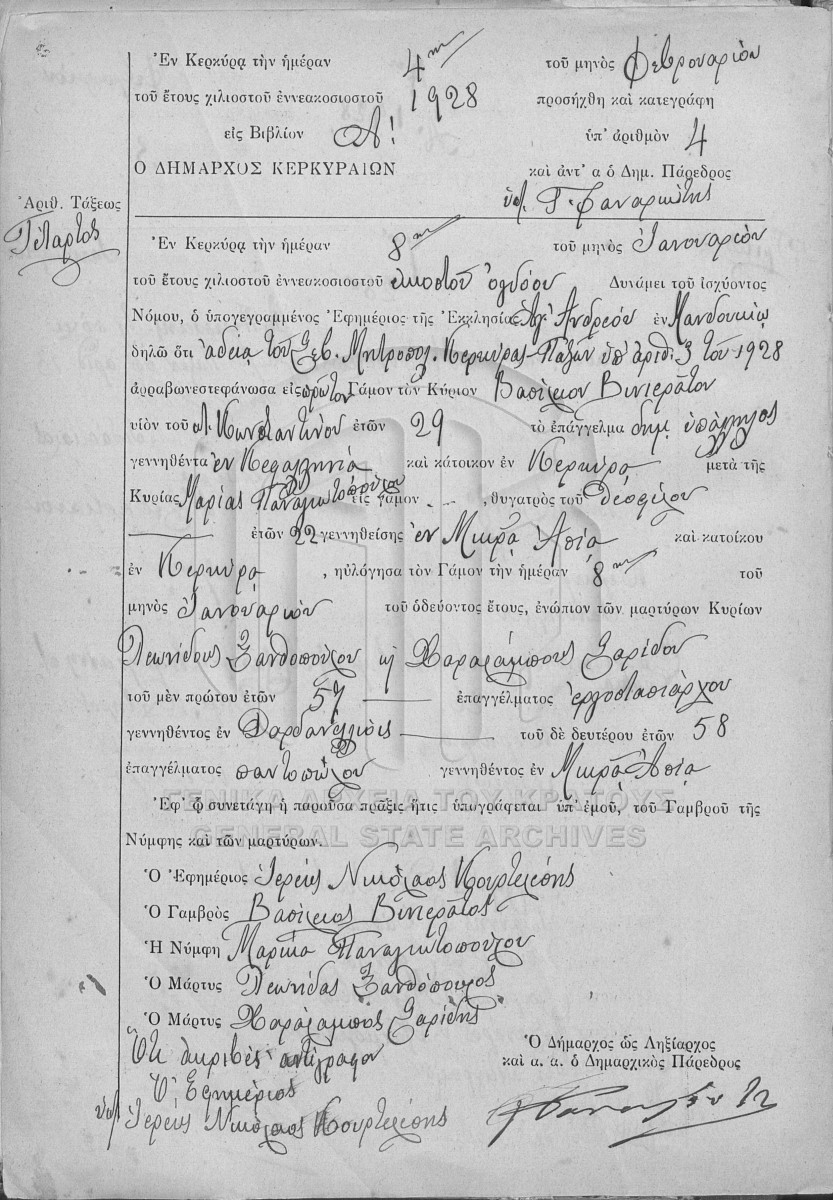 Ἐν Κερκύρᾳ τὴν ἡμέραν 4ην τοῦ μηνὸς Φεβρουαρίου
τοῦ ἔτους χιλιοστοῦ ἐννεακοσιοστοῦ 1928 προσήχθη καὶ κατεγράφη
εἰς Βιβλίον Α! ὑπ' ἀριθμὸν 4
Ο ΔΗΜΑΡΧΟΣ ΚΕΡΚΥΡΑΙΩΝ καὶ ἀντ' α ὁ Δημ. Πάρεδρος
Ἀριθ. Τάξεως
Τέταρτος
ὑπ. Γ. Φαναριώτης
Ἐν Κερκύρᾳ τὴν ἡμέραν 8ην τοῦ μηνὸς Ἰανουαρίου
τοῦ ἔτους χιλιοστοῦ ἐννεακοσιοστοῦ εἰκοστοῦ ὀγδόου Δυνάμει τοῦ ἰσχύοντος
Νόμου, ὁ ὑπογεγραμμένος Ἐφημέριος τῆς Ἐκκλησίας Ἁγ. Ἀνδρέου ἐν Μανδουκίῳ
δηλῶ ὅτι ἀδείᾳ τοῦ Σεβ. Μητροπολ. Κερκύρας-Παξῶν ὑπ' ἀριθ. 3 τοῦ 1928
ἀρραβωνεστεφάνωσα εἰς πρῶτον Γάμον τὸν Κύριον Βασίλειον Βινιεράτον
υἱὸν τοῦ Κωνσταντίνου ἐτῶν 29 τὸ ἐπάγγελμα δημ. ὑπάλληλος
γεννηθέντα ἐν Κεφαλληνίᾳ καὶ κάτοικον ἐν Κερκύρᾳ μετὰ τῆς
Κυρίας Μαρίας Παναγιωτοπούλου εἰς γάμον , θυγατρὸς τοῦ Θεοφίλου
ἐτῶν 22 γεννηθείσης ἐν Μικρᾷ Ἀσίᾳ καὶ κατοίκου
ἐν Κερκύρᾳ , ηὐλόγησα τὸν Γάμον τὴν ἡμέραν 8ην τοῦ
μηνὸς Ἰανουαρίου τοῦ ὁδεύοντος ἔτους, ἐνώπιον τῶν μαρτύρων Κυρίων
Λεωνίδους Ξανθοπούλου κ Χαραλάμπους Σαρίδου
τοῦ μὲν πρώτου ἐτῶν 57 ἐπαγγέλματος ἐργοστασιάρχου
γεννηθέντος ἐν Δαρδανελλίοις τοῦ δὲ δευτέρου ἐτῶν 58
ἐπαγγέλματος παντοπώλου γεννηθέντος ἐν Μικρᾷ Ἀσίᾳ
Ἐφ' ᾧ συνετάγη ἡ παροῦσα πρᾶξις ἥτις ὑπογράφεται ὑπ' ἐμοῦ, τοῦ Γαμβροῦ τῆς
ΓΕΝΙΚΑ ΑΡΧΕΙΑ ΤΟΥ ΚΡΑΤΟΥΣ
GENERAL STATE ARCHIVES
Νύμφης καὶ τῶν μαρτύρων.
Ὁ Ἐφημέριος Ἱερεὺς Νικόλαος Κουρτελέσης
Ὁ Γαμβρὸς Βασίλειος Βινιεράτος
Ἡ Νύμφη Μαρίκα Παναγιωτοπούλου
Ὁ Μάρτυς Λεωνίδας Ξανθόπουλος
Ὁ Μάρτυς Χαράλαμπος Σαρίδης
Ὅτι ἀκριβὲς ἀντίγραφον
Ὁ Ἐφημέριος
ὑπ. Ἱερεὺς Νικόλαος Κουρτελέσης
Ὁ Δήμαρχος ὡς Ληξίαρχος
καὶ α. α. ὁ Δημαρχικὸς Πάρεδρος